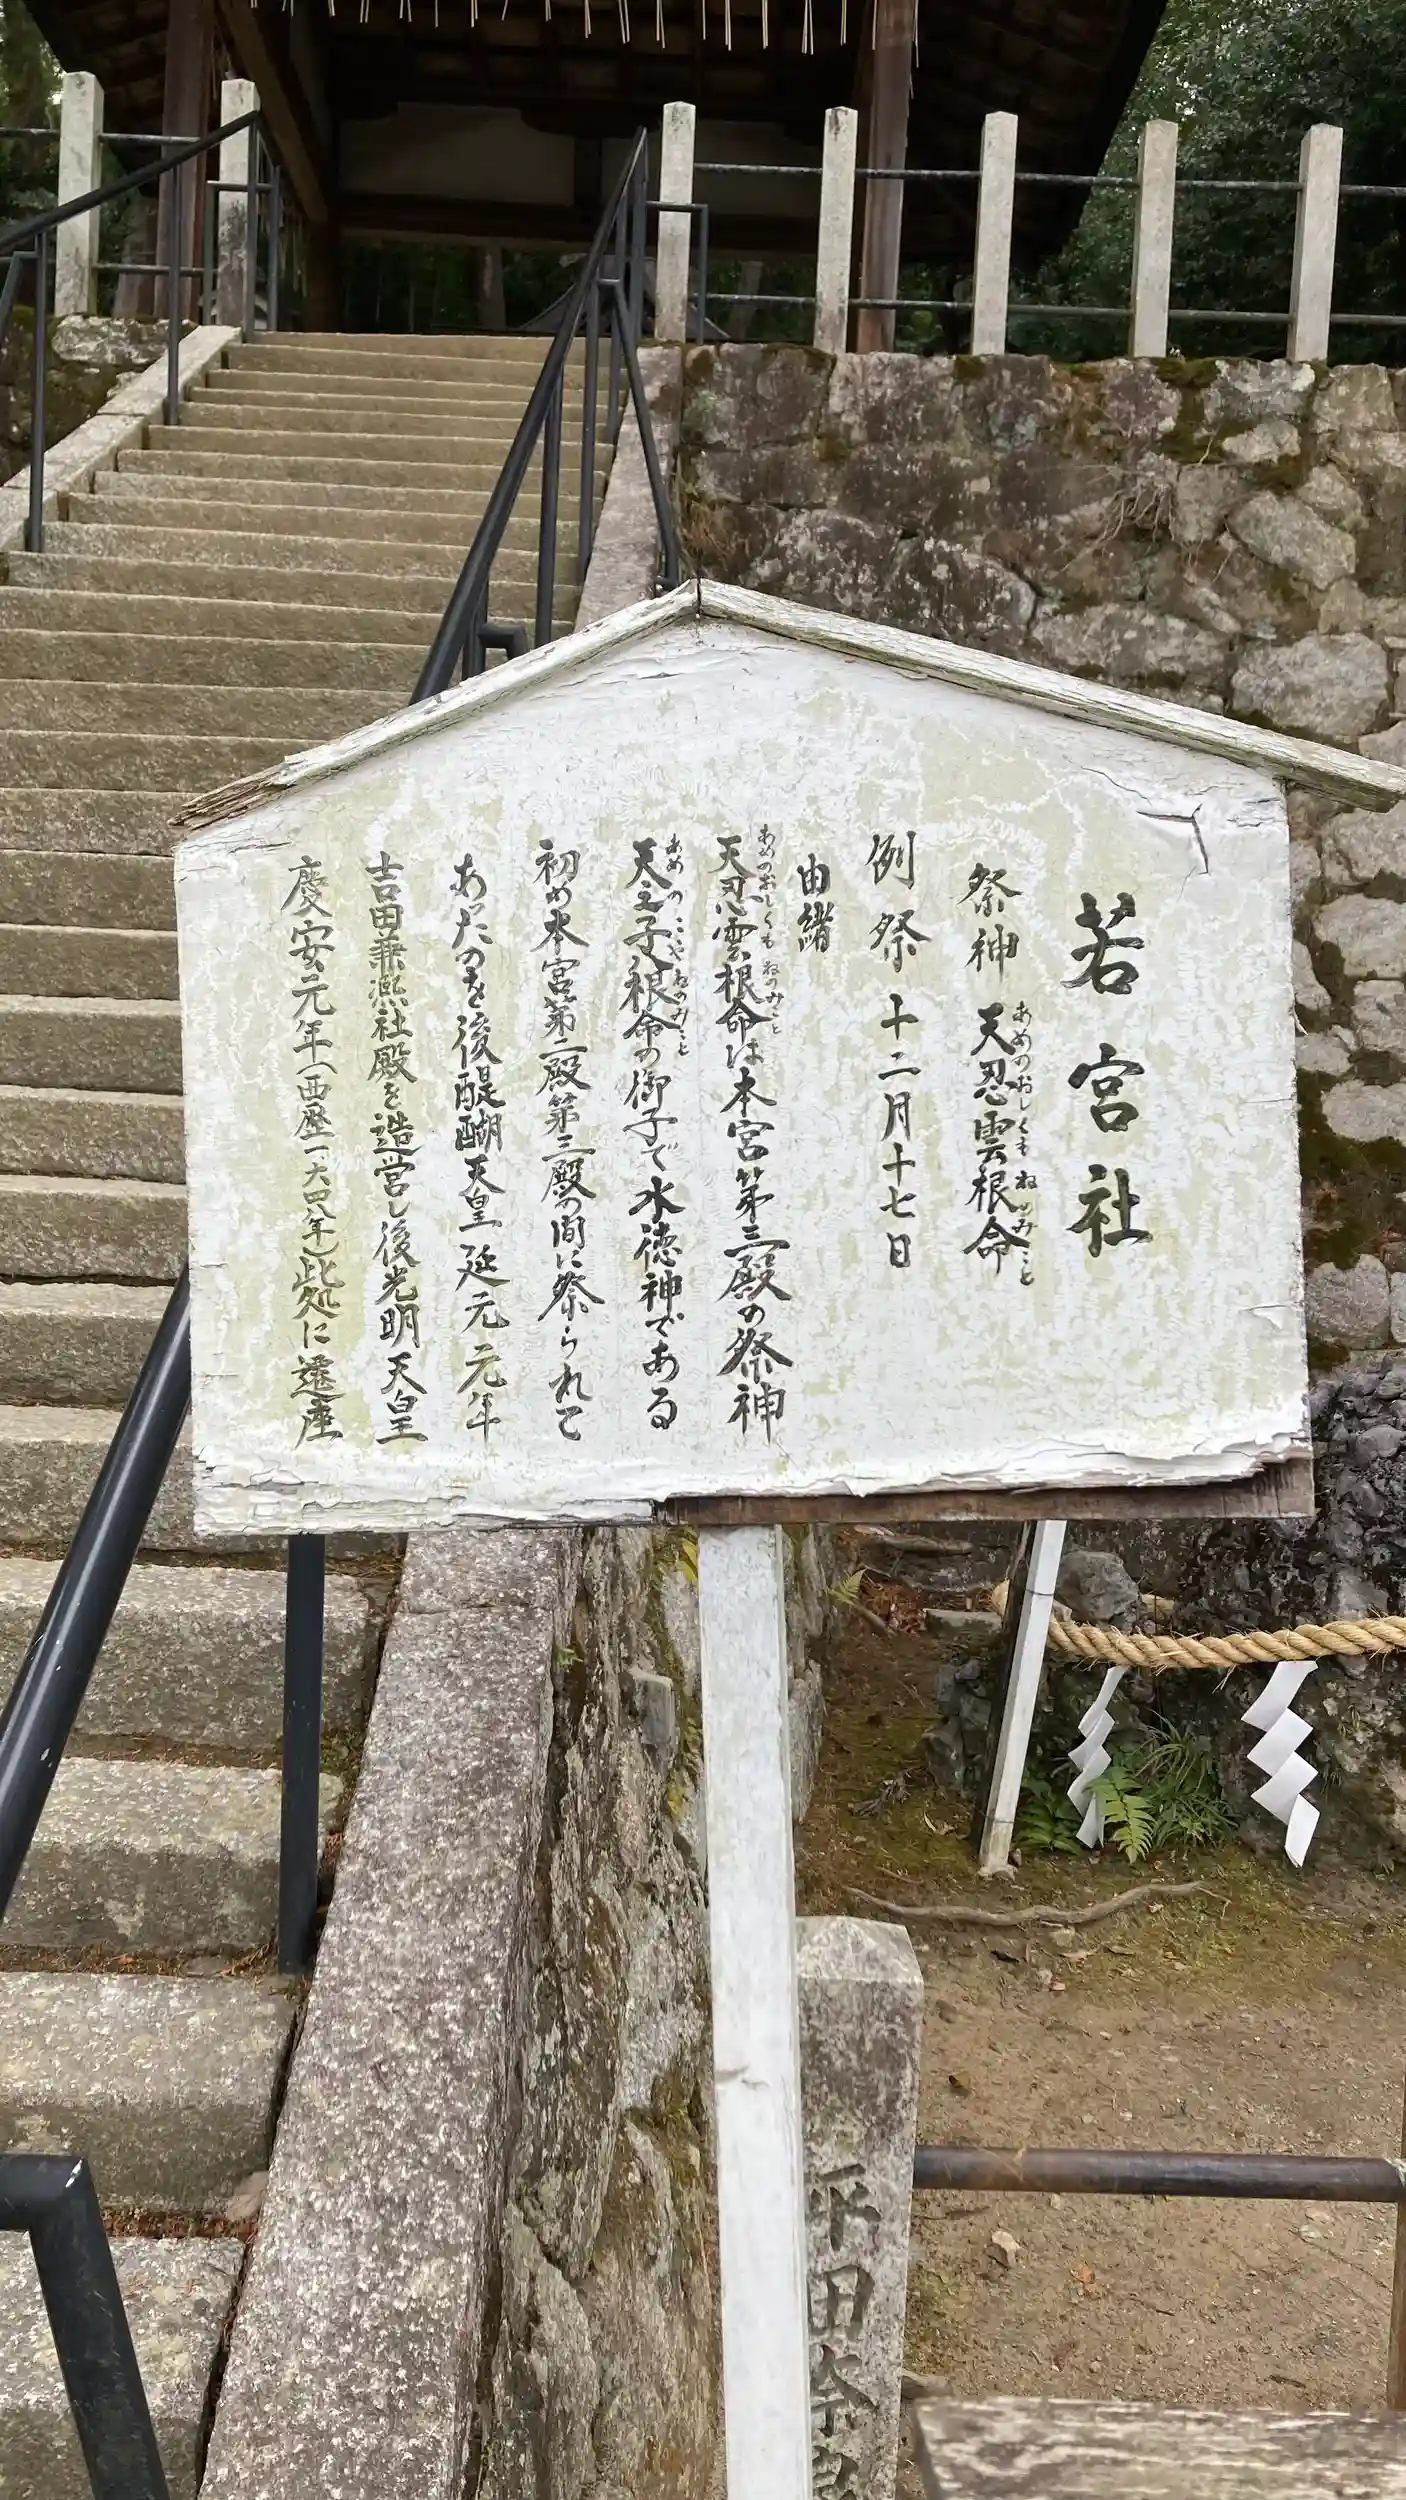 若宮社
祭神 天忍雲根命
あめのおしくもねのみこと
例祭 十二月十七日
由緒
天忍雲根命は本宮第三殿の祭神
あめのおしくもねのみこと
天之子八根命の御子で水徳神である
あめのこやねのみこと
初め本宮第二殿第三殿の間に祭られて
あったのを後醍醐天皇延元元年
吉田兼熈社殿を造営し後光明天皇
慶安元年(西歴一六四八年)此処に遷座
平田奈